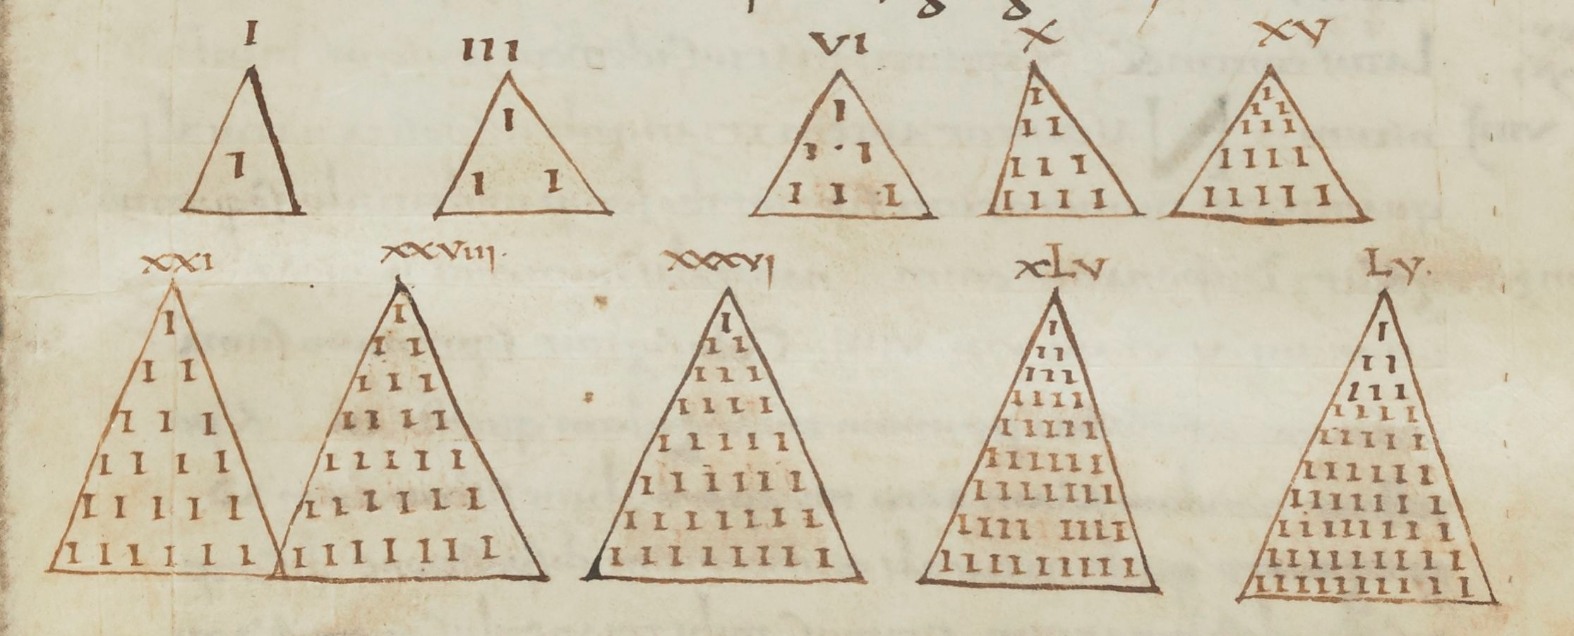 I III VI X XV
I
I
I I
I
I I
I I I
I
I I
I I I
I I I I
I
I I
I I I
I I I I
I I I I I
XXI XXVIII XXXVI XLV LV
I
I I
I I I
I I I I
I I I I I
I I I I I I
I
I I
I I I
I I I I
I I I I I
I I I I I I
I I I I I I I
I
I I
I I I
I I I I
I I I I I
I I I I I I
I I I I I I I
I I I I I I I I
I
I I
I I I
I I I I
I I I I I
I I I I I I
I I I I I I I
I I I I I I I I
I I I I I I I I I
I
I I
I I I
I I I I
I I I I I
I I I I I I
I I I I I I I
I I I I I I I I
I I I I I I I I I
I I I I I I I I I I